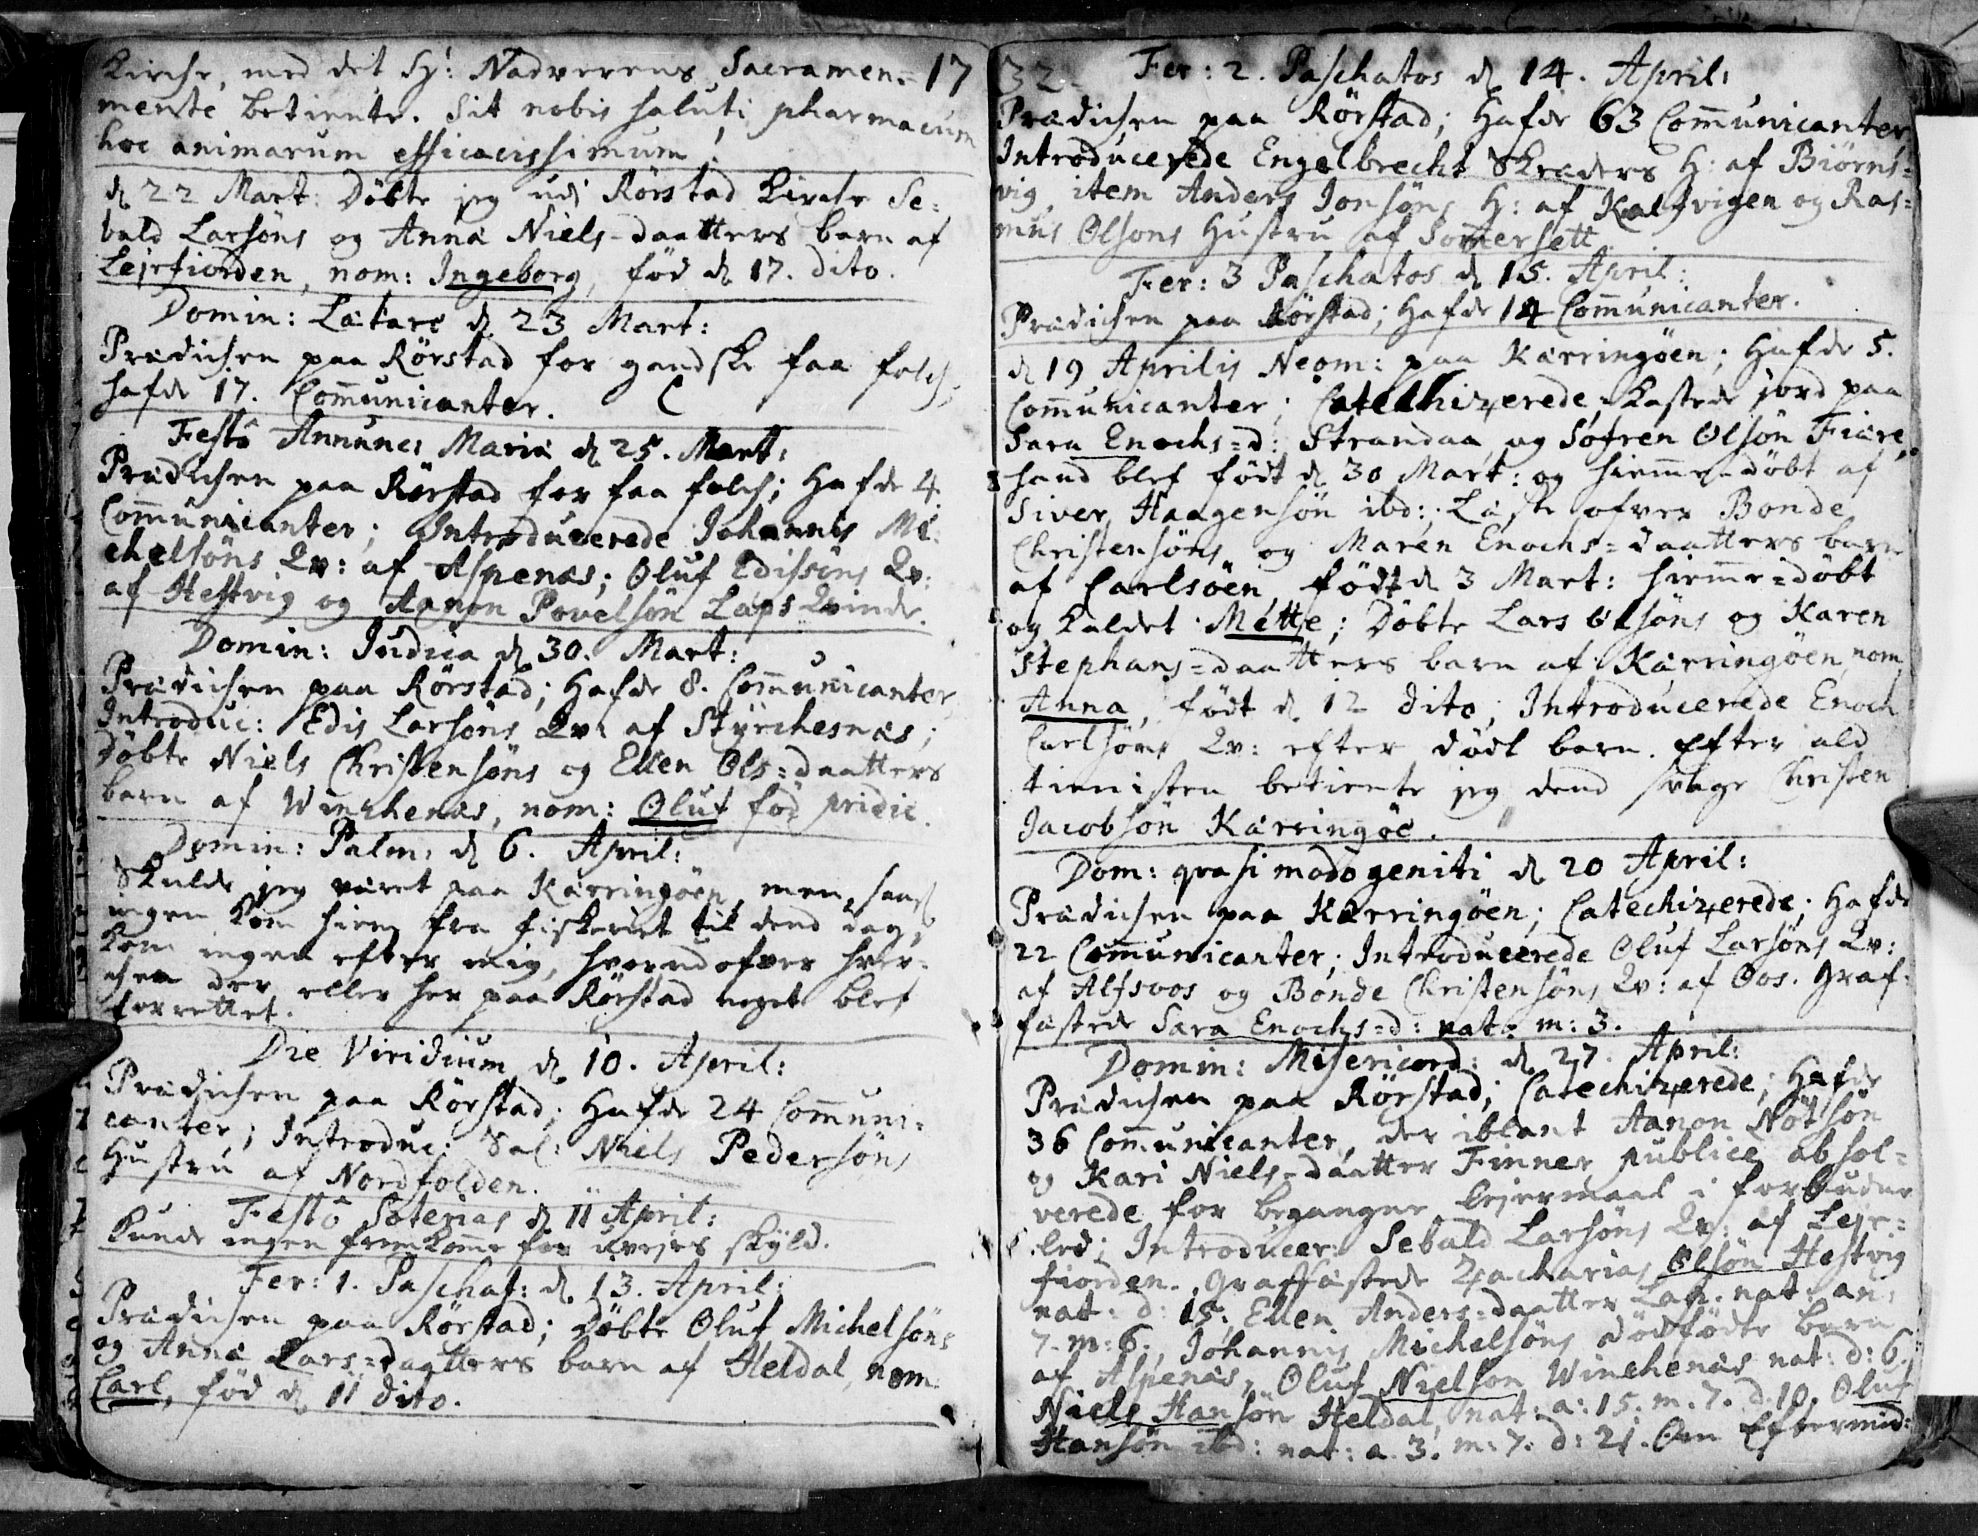 Kirche, med det Hj: Nadverens Sacramen- 17
mente betiente. Sit nobis saluti pharmacum
hoc animarum efficacissimum!
d 22 Mart: Döbte jeg udi Rörstad Kirche Se:
bald Larsöns og Anna Niels-daatters barn af
Lejrfiorden, nom: Ingeborg, föd d 17. dito.
Domin: Lætare d 23 Mart:
Prædichen paa Rörstad for gandske faa folch,
hafde 17. Com̄unicanter.
Festô Annunc: Mariæ d 25. Mart:
Prædichen paa Rörstad for faa folch; Hafde 4.
Com̄unicanter; Introducerede Johannis Mi:
chelsöns Qv: af Aspenæs; Oluf Edissöns Qv:
af Hestvig og Aanon Povelsön Laps Qvinde.
Domin: Judica d 30. Mart:
Prædichen paa Rörstad; Hafde 8. Com̄unicanter,
Introduc: Edis Larsöns Qv: af Styrchesnæs;
Döbte Niels Christensöns og Ellen Ols=daatters
barn af Winchenæs, nom: Oluf föd pridie.
Domin: Palm: d 6. April:
Skulde jeg været paa Kærringöen, men, saas
ingen kom hiem fra fiskeriet til dend dag,
kom ingen efter mig, hvorudofver hver-
chen der eller her paa Rörstad noget blef
forrettet.
Die Viridium d 10. April:
Prædichen paa Rörstad; Hafde 24 Com̄uni:
canter; Introduc: Sal: Niels Pedersöns
Hustru af Nordfolden.
Festô Soterias d 11 April:
Kunde ingen fremkom̄e for uvejrs skyld.
Fer: 1. Paschat: d 13. April:
Prædichen paa Rörstad; Döbte Oluf Michelsöns
og Anna Lars=daatters barn af Heldal, nom:
Carl, föd d 11 dito.
32- Fer: 2. Paschatos d 14. April:
Prædichen paa Rörstad; Hafde 63 Com̄unicanter,
Introducerede Engelbrecht Skraders H: af Biörns=
vig, item Anders Jonsöns H: af Kalfvigen og Ras=
mus Olsons Hustru af Som̄ersett
Fer: 3 Paschatos d 15. April:
Prædichen paa Rörstad; Hafde 14 Com̄unicanter.
d 19 Aprilis Neom: paa Kærringöen; Hafde 5.
Com̄unicanter; Catechizerede, kastede jord paa
Sara Enochs=d: Strandaa, og Söfren Olsön Fiære,
hand blef födt d 30 Mart: og hiem̄e-döbt af
Siver Haagensön ibd:; Læste ofver Bonde
Christensöns og Maren Enochs=daatters barn
af Carlsöen, födt d 3 Mart: hiem̄e=döbt
og kaldet Mette; Döbte Lars Olsöns og Karen
Stephans=daatters barn af Kærringöen, nom
Anna, födt d 12 dito; Introducerede Enoch
Carlsöns Qv: efter dödt barn. Efter ald
tienisten betiente jeg dend svage Christen
Jacobsön Kærringöe.
Dom: qvasi modo geniti d 20 April:
Prædichen paa Kærringöen; Catechizerede; Hafde
22 Com̄unicanter; Introducerede Oluf Larsöns Qv:
af Alfsvos og Bonde Christensöns Qv: af Oos. Graf-
fæstede Sara Enochs=d: nata m: 3.
Domin: Misericord: d 27. April:
Prædichen paa Rörstad; Catechizerede; Hafde
36 Com̄unicanter, der iblant Aanon Nötsön
og Kari Niels-daatter Finner publicè absol=
verede for begangne lejermaal i forbudne
led; Introducer: Sebald Larsöns Qv: af Lejr=
fiorden. Graffæstede Zacharias Olsön Hestvig
nat: d: 15, Ellen Anders=daatter Lap. nat: an:
7. m: 6., Johannis Michelsöns dödfödte barn
af Aspenæs, Oluf Nielson Winchenæs nat: d: 6.,
Niels Hansön Heldal, nat: a: 15. m. 7. d. 10. Oluf
Hansön ibd: nat: a. 3. m: 7. d: 21. Om Eftermid: